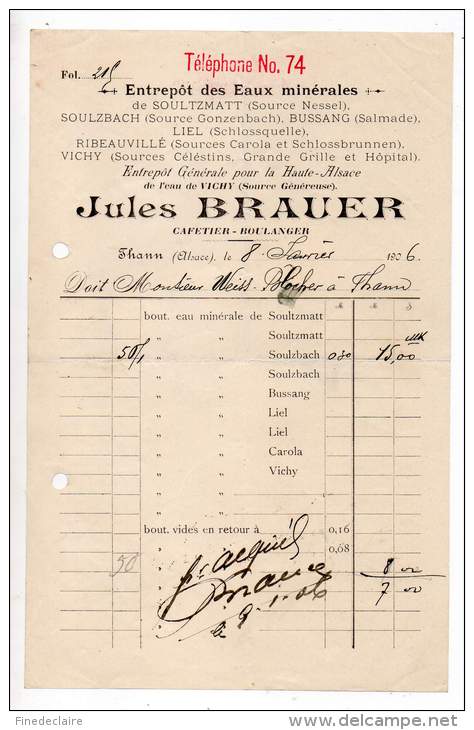 Téléphone No. 74
Fol. 215
Entrepôt des Eaux minérales
de SOULTZMATT (Source Nessel),
SOULZBACH (Source Gonzenbach), BUSSANG (Salmade),
LIEL (Schlossquelle),
RIBEAUVILLÉ (Sources Carola et Schlossbrunnen),
VICHY (Sources Célestins, Grande Grille et Hôpital).
Entrepôt Générale pour la Haute-Alsace
de l'eau de VICHY (Source Généreuse).
Jules BRAUER
CAFETIER - BOULANGER
Thann (Alsace), le 8. Janvier 1906.
Doit Monsieur Weiss-Blocher à Thann
bout. eau minérale de Soultzmatt
" " Soultzmatt
50/1 " " Soulzbach 0 30 15,00
" " Soulzbach
" " Bussang
" " Liel
" " Liel
" " Carola
" " Vichy
bout. vides en retour à 0,16
" " 0,68
50 8 00
7 00
pr acquit
Brauer
le 9.1.06
Finedeclaire
www.delcampe.net